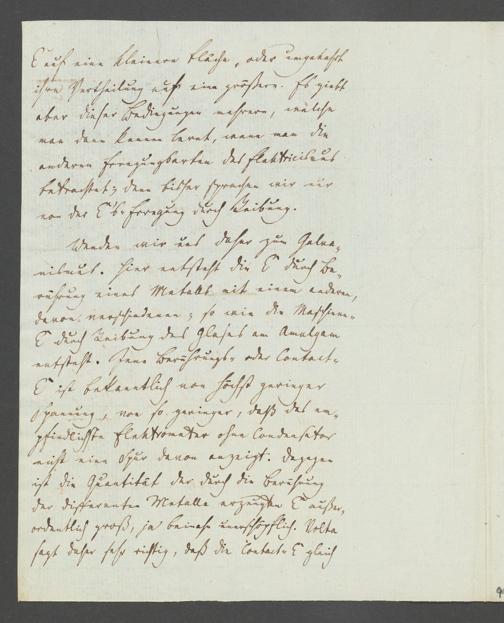 E auf eine kleinere Fläche, oder umgekehrt
ihre Vertheilung auf eine größere. Es giebt
aber dieser Bedingungen mehrere, welche
man dann kennen lernt, wenn man die
anderen Erregungsarten des Elektricismus
betrachtet; denn bisher sprachen wir nur
von der E's-Erregung durch Reibung.
Wenden wir uns daher zum Galva-
nismus. Hier entsteht die E durch Be-
rührung eines Metalls mit einem anderen,
davon verschiedenen; so wie die Maschinen-
E durch Reibung des Glases am Amalgam
entsteht. Jene Berührungs- oder Contact-
E ist bekanntlich von höchst geringer
Spannung, von so geringer, daß das em-
pfindlichste Elektrometer ohne Condensator
nicht eine Spur davon anzeigt. Dagegen
ist die Quantität der durch die Berührung
der differenten Metalle erzeugten E außer-
ordentlich groß, ja beinahe unerschöpflich. Volta
sagt daher sehr richtig, daß die Contact-E gleich